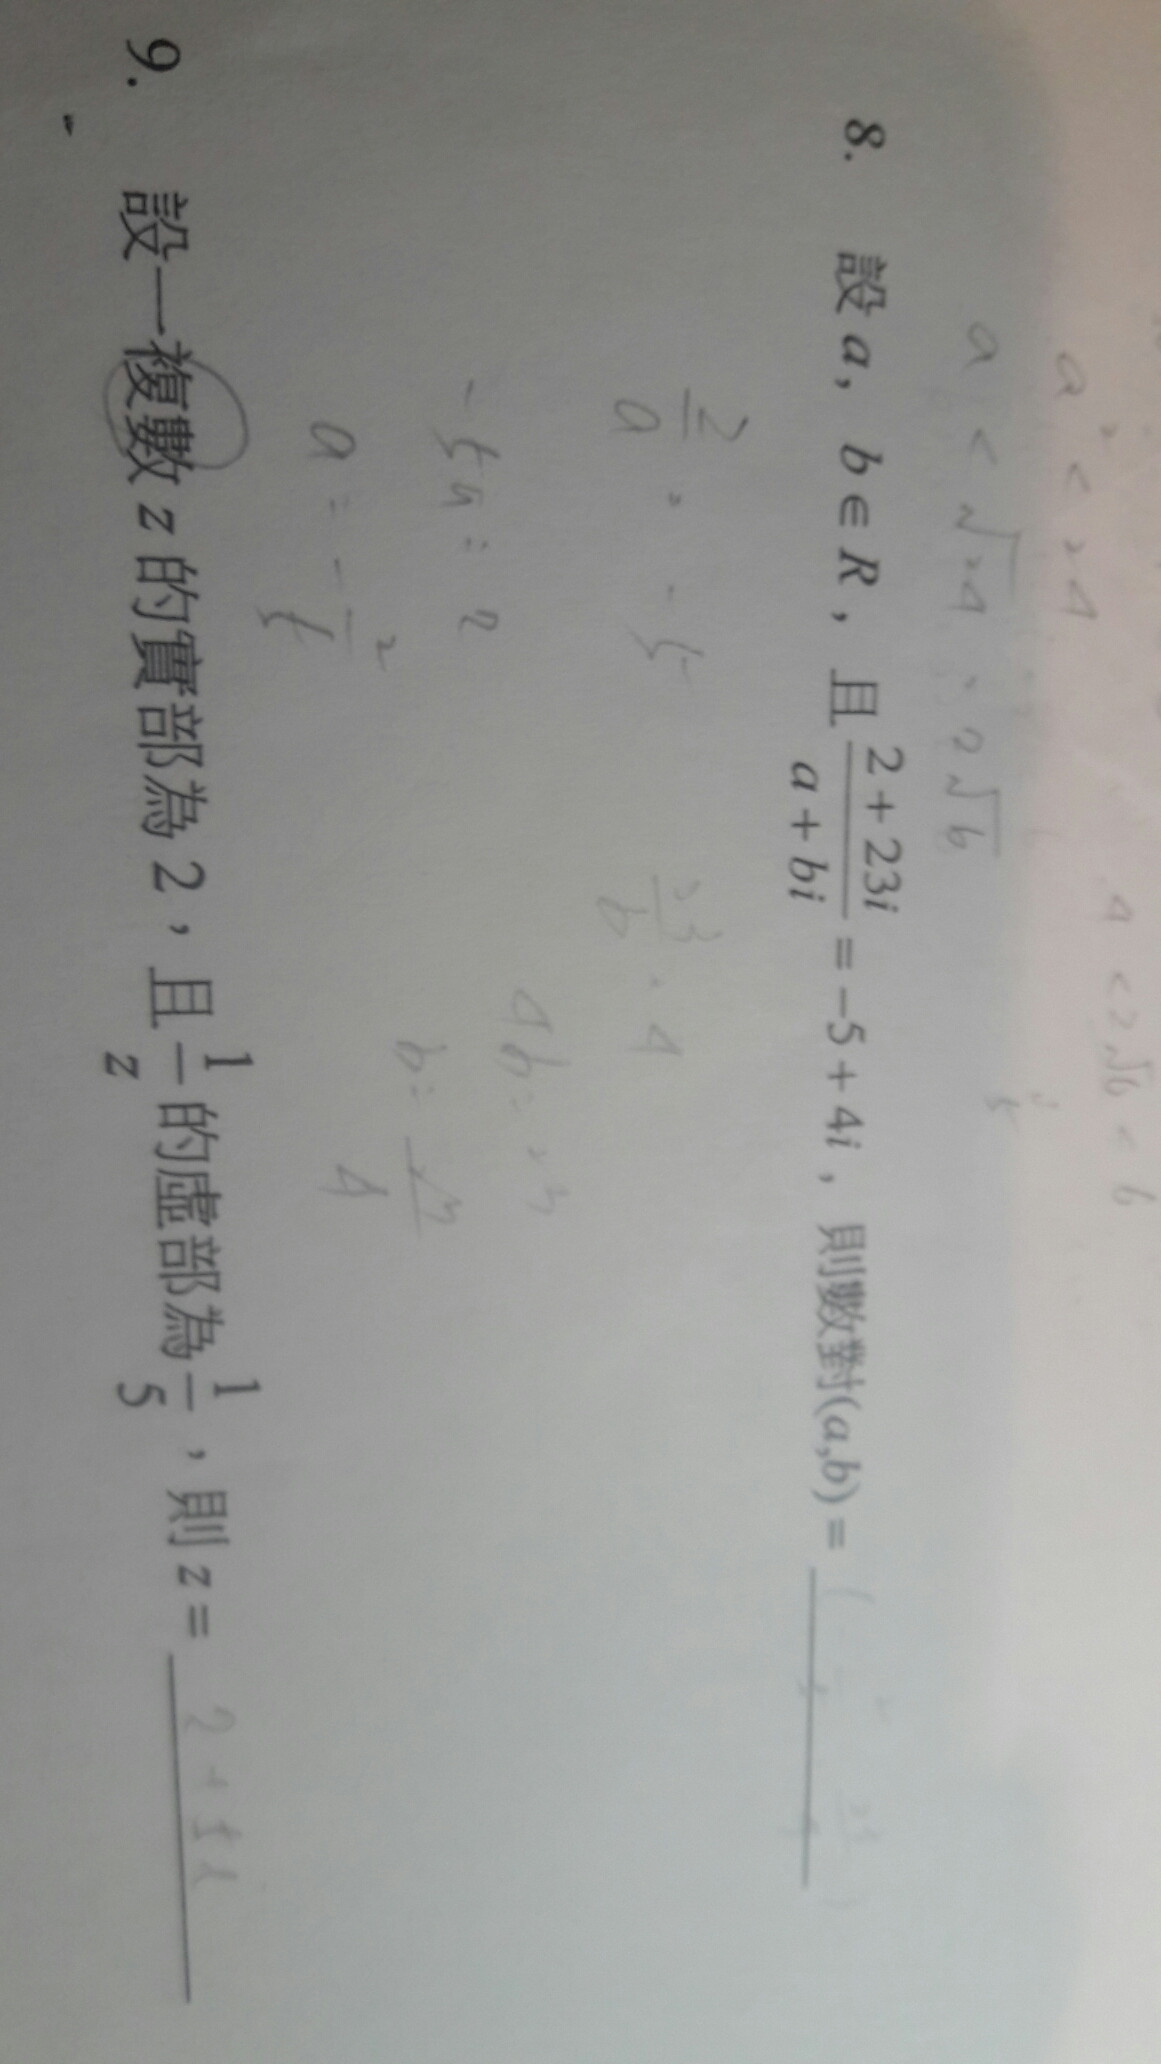 a² < 24
4 < 2√6 <
a < √24 = 2√6
8. 設 a, b ∈ R，且 \frac{2+23i}{a+bi} = -5+4i，則數對(a,b) =
\frac{2}{a} = -5
\frac{23}{b} = 4
-5a = 2
4b = 23
a = -\frac{2}{5}
b = \frac{23}{4}
9. 設一複數 z 的實部為 2，且 \frac{1}{z} 的虛部為 \frac{1}{5}，則 z = 2 + 5i